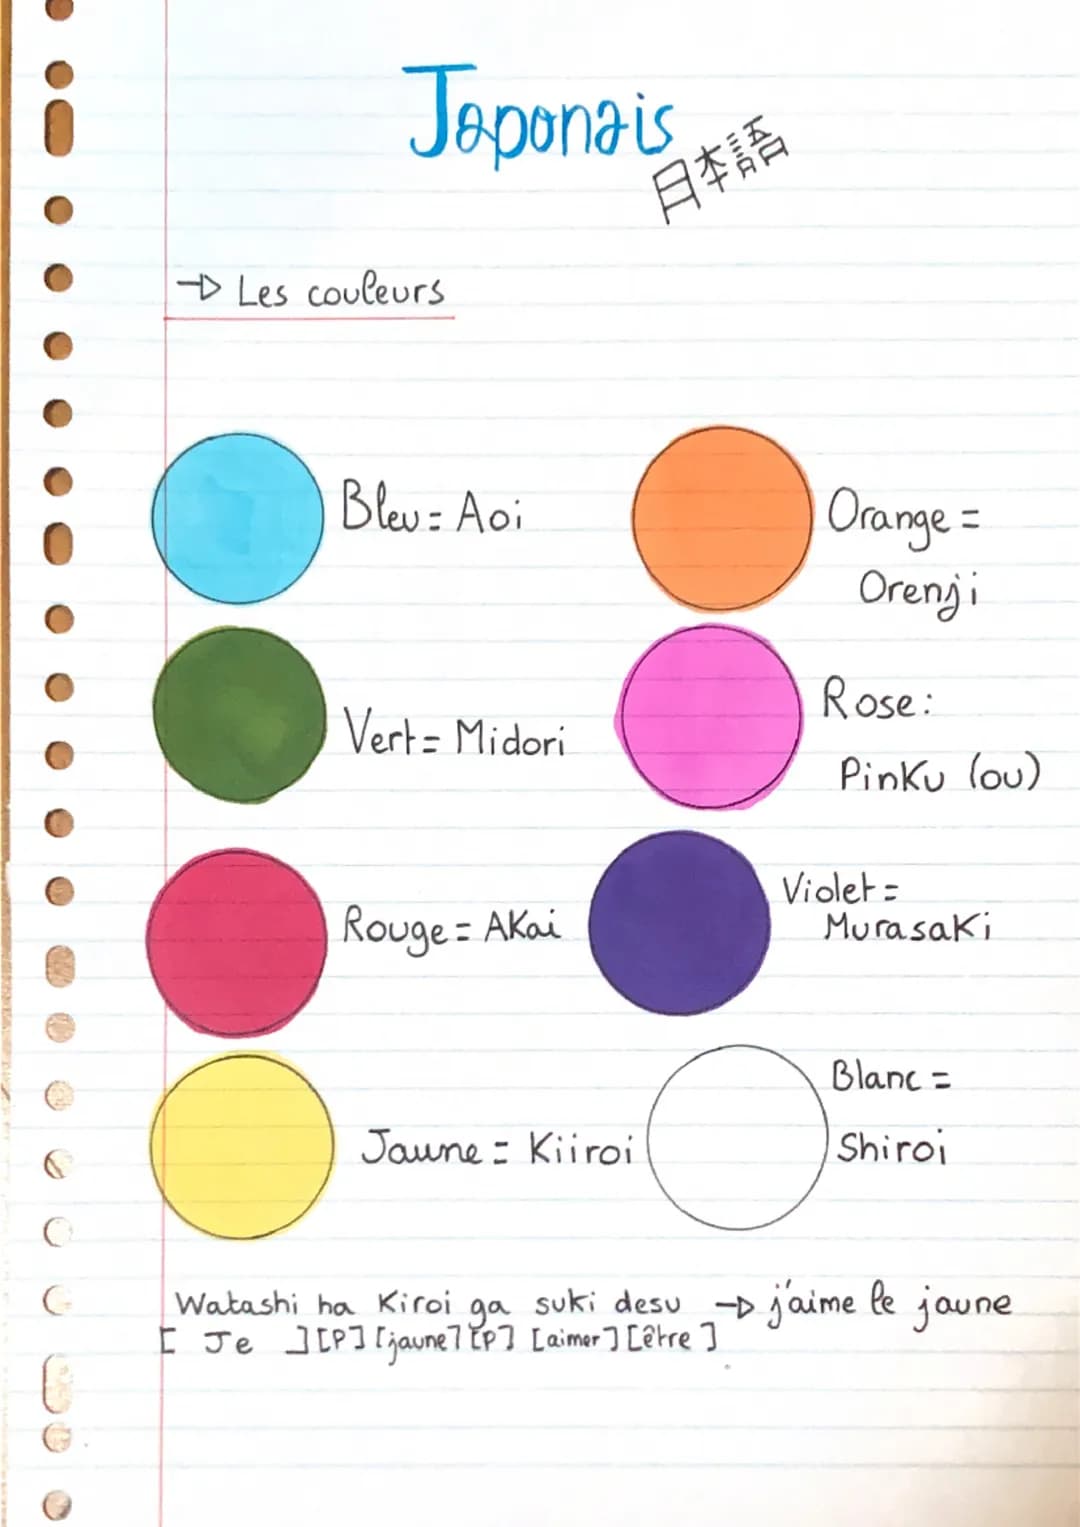 Japonais
日本語
→ Les couleurs
Bleu = Aoi
Orange =
Orenji
Vert = Midori
Rose :
Pinku (ou)
Rouge = Akai
Violet =
Murasaki
Jaune = Kiiroi
Blanc =
Shiroi
Watashi ha Kiroi ga suki desu → j'aime le jaune
[ Je ] [P] [jaune] [P] [aimer] [être]